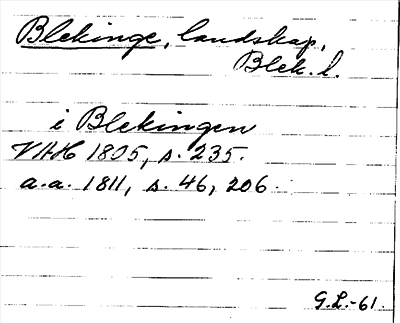 Blekinge, landskap,
Blek. l.
i Blekingen
VAH 1805, s. 235.
a.a. 1811, s. 46, 206.
G.L.-61.